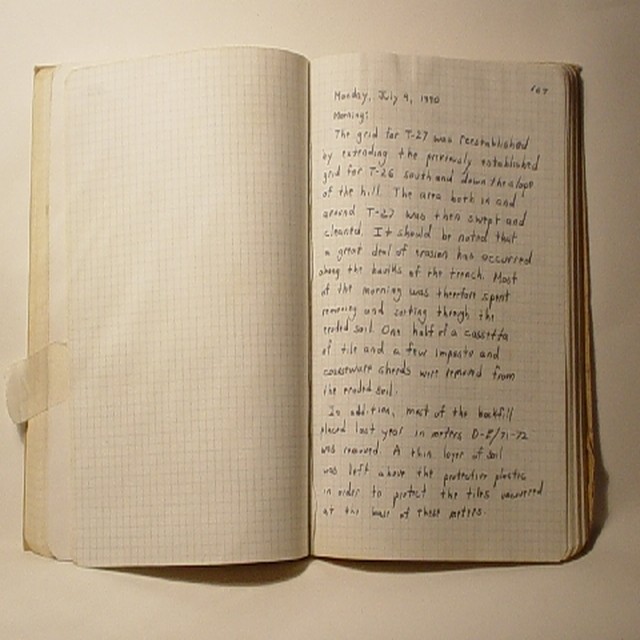 167
Monday, July 9, 1990
Morning:
The grid for T-27 was reestablished
by extending the previously established
grid for T-26 south and down the slope
of the hill. The area both in and
around T-27 was then swept and
cleaned. It should be noted that
a great deal of erosion has occurred
along the baulks of the trench. Most
of the morning was therefore spent
removing and sorting through the
eroded soil. One half of a cassetta
of tile and a few impasto and
courseware sherds were removed from
the eroded soil.
In addition, most of the backfill
placed last year in meters D-E/71-72
was removed. A thin layer of soil
was left above the protective plastic
in order to protect the tiles uncovered
at the base of these meters.